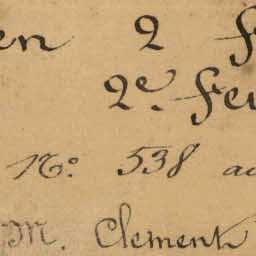 en 2 f
2e. feu
No. 538 au
M. Clement